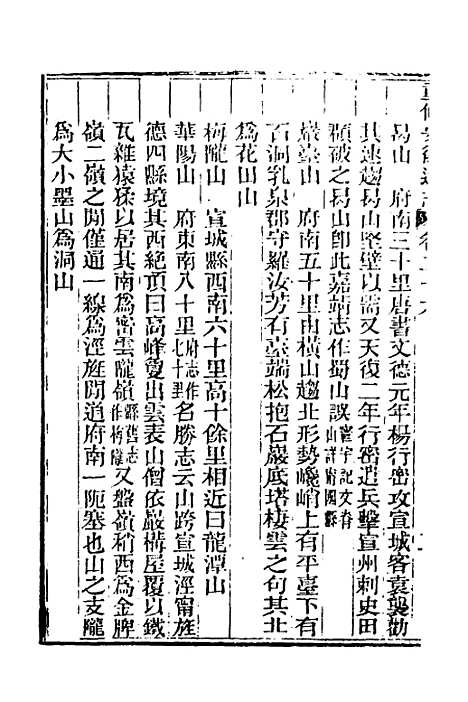 重修安徽通志 卷二十六
曷山 府南三十里唐書文德元年楊行密攻宣城客袁襲勸
其速趨曷山堅壁以端又天復二年行密遣兵擊宣州刺史田
頵破之曷山卽此嘉靖志作蜀山誤
巖臺山 府南五十里由橫山趨北形勢巉峭上有平臺下有
石洞乳泉郡守羅汝芳有臺端松抱石巖底塔棲雲之句其北
爲花田山
梅隴山 宣城縣西南六十里高十餘里相近曰龍潭山
華陽山 府東南八十里府志作七十里名勝志云山跨宣城涇甯旌
德四縣境其西絕頂曰高峰夐出雲表山僧依巖構屋覆以鐵
瓦雜猿猱以居其南爲密雲隴嶺縣舊志作梅隴又盤嶺稍西爲金牌
嶺二嶺之閒僅通一線爲涇旌閒道府南一阨塞也山之支隴
爲大小墨山爲洞山